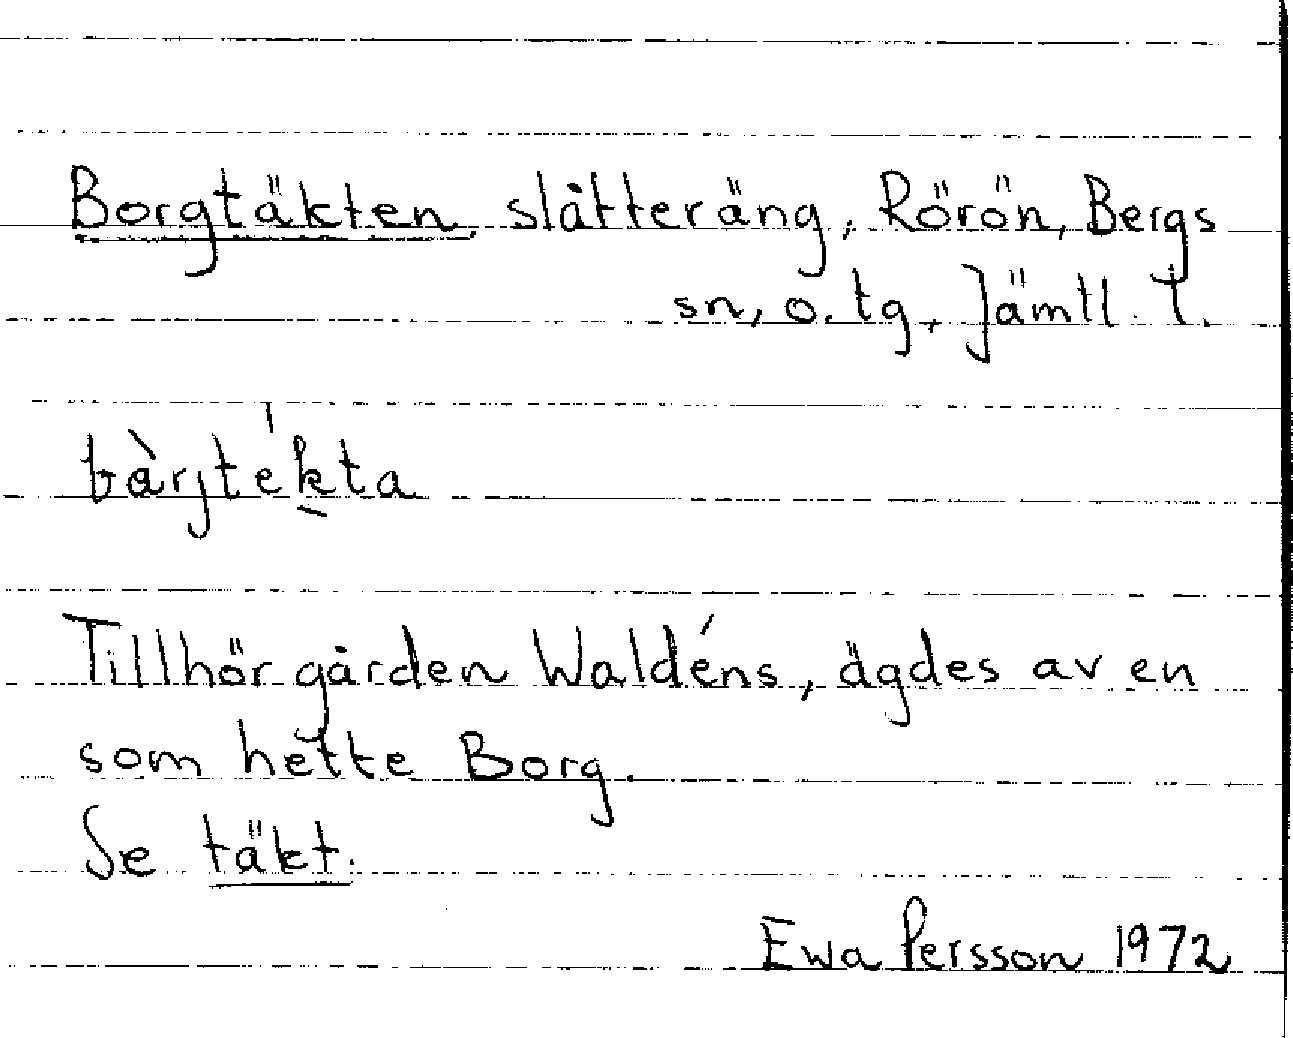 Borgtäkten, slåtteräng, Rörön, Bergs
sn, o. tg, Jämtl. l.
bàrjtékta
Tillhör gården Waldéns, ägdes av en
som hette Borg.
Se täkt.
Ewa Persson 1972